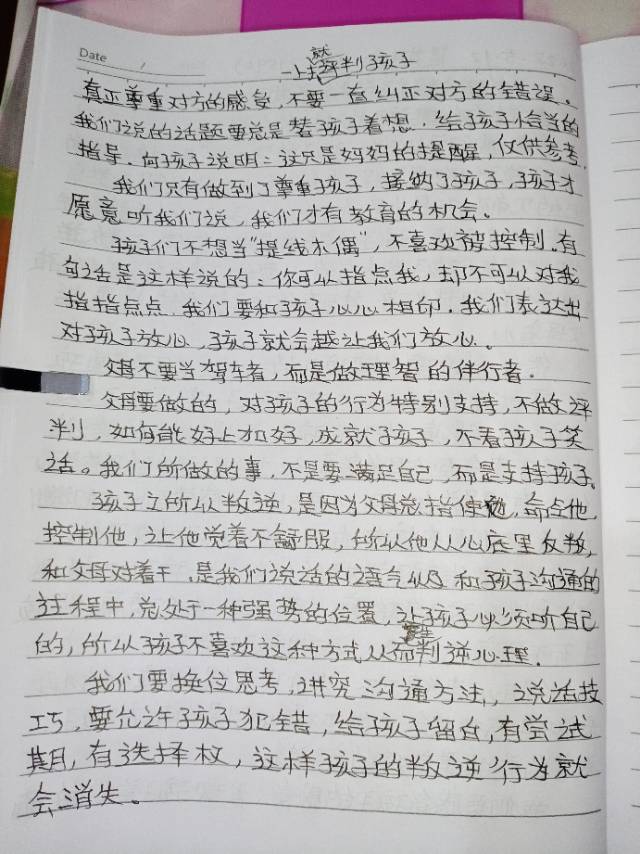 Date
一上来就评判孩子
真正尊重对方的感受，不要一直纠正对方的错误。
我们说的话题要总是替孩子着想，给孩子恰当的
指导。向孩子说明：这只是妈妈的提醒，仅供参考。
我们只有做到了尊重孩子，接纳了孩子，孩子才
愿意听我们说，我们才有教育的机会。
孩子们不想当“提线木偶”，不喜欢被控制。有
句话是这样说的：你可以指点我，却不可以对我
指指点点。我们要和孩子心心相印。我们表达出
对孩子放心，孩子就会越让我们放心。
父母不要当驾车者，而是做理智的伴行者。
父母要做的，对孩子的行为特别支持，不做评
判，如何能好上加好，成就孩子，不看孩子笑
话。我们所做的事，不是要满足自己，而是支持孩子。
孩子之所以叛逆，是因为父母总指使他，命令他，
控制他，让他觉着不舒服，所以他从心底里反叛，
和父母对着干，是我们说话的语气以及和孩子沟通的
过程中，总处于一种强势的位置，让孩子必须听自己
的，所以孩子不喜欢这种方式从而产生判逆心理。
我们要换位思考，讲究沟通方法，说话技
巧，要允许孩子犯错，给孩子留白，有尝试
期，有选择权，这样孩子的叛逆行为就
会消失。